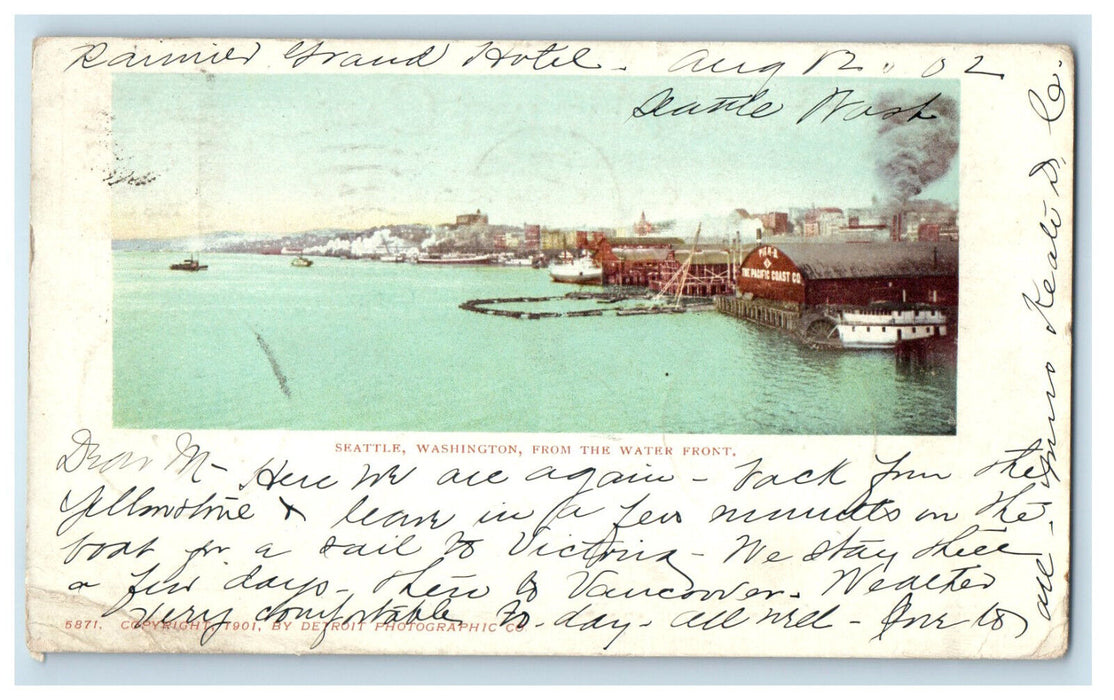 Rainier Grand Hotel - Aug 12. 02
Seattle Wash
PIER-B
THE PACIFIC COAST CO.
SEATTLE, WASHINGTON, FROM THE WATER FRONT.
Dear M - Here we are again - back from the
Yellowstone & leave in a few minutes on the
boat for a sail to Victoria - We stay there
a few days - then to Vancouver. Weather
very comfortable to-day - all well - Love to
all -
5871. COPYRIGHT, 1901, BY DETROIT PHOTOGRAPHIC CO.